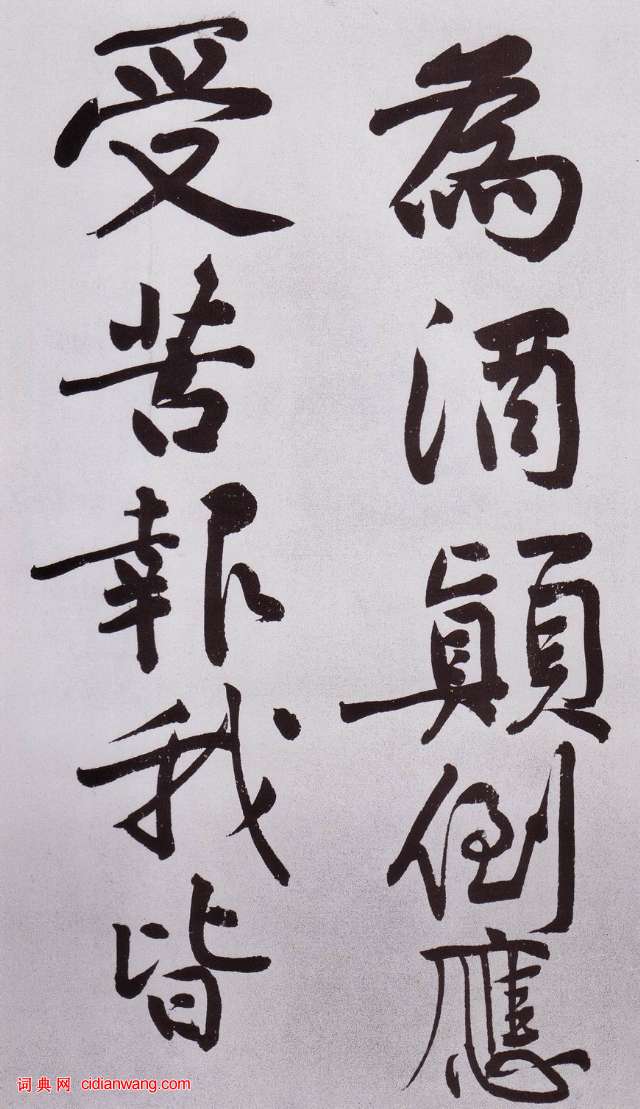 為酒顛倒應
受苦報我皆
词典网 cidianwang.com